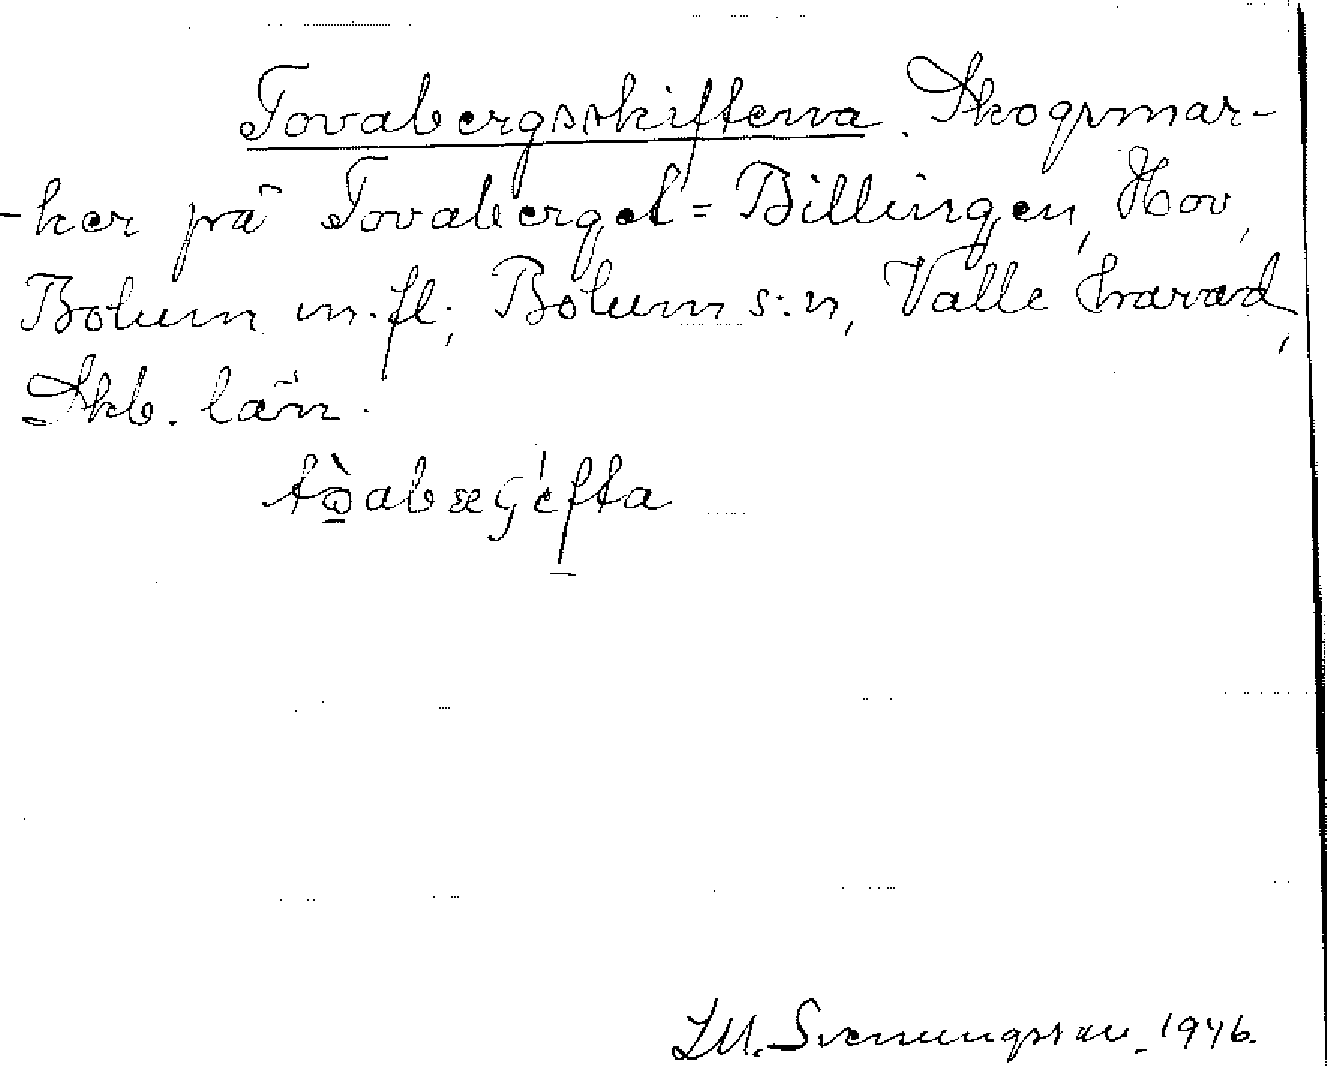 Tovabergsskifterna. Skogsmar-
-ker på Tovaberget = Billingen, Hov,
Bolum m.fl; Bolum s:n, Valle härad,
Skb. län.
L.M. Svenungsson. 1946.